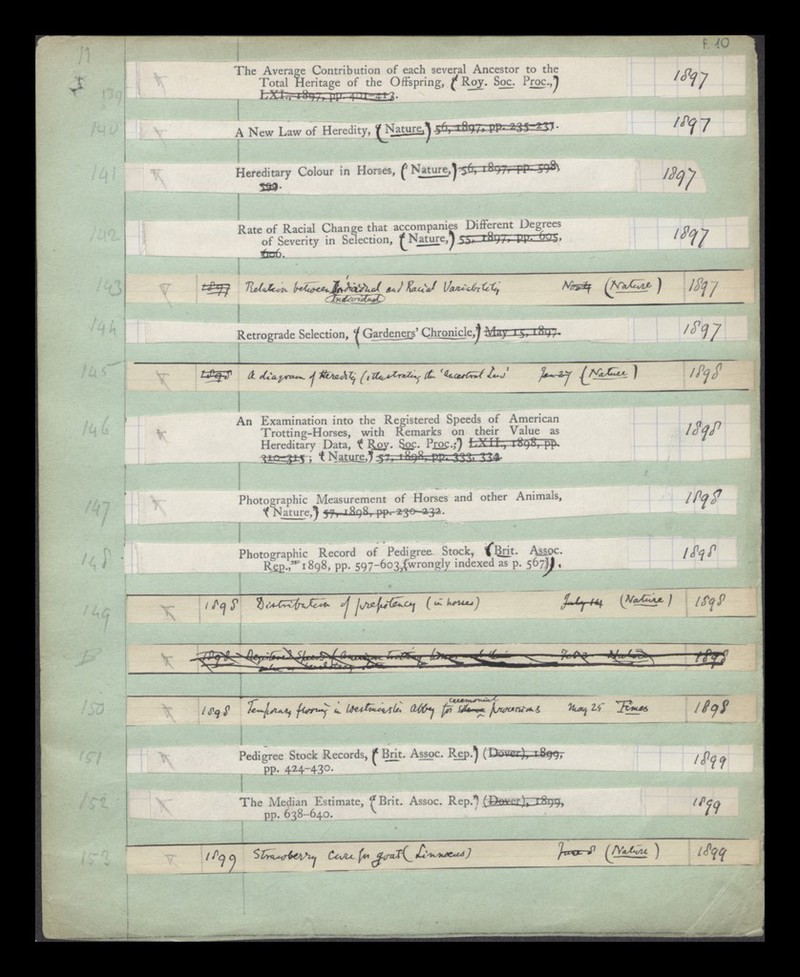 F. 10
139 The Average Contribution of each several Ancestor to the 1897
Total Heritage of the Offspring, (Roy. Soc. Proc.,)
LXI., 1897, pp. 401-413.
140 A New Law of Heredity, (Nature,) 56, 1897, pp. 235-237. 1897
141 Hereditary Colour in Horses, (Nature,) 56, 1897, pp. 598, 1897
599.
142 Rate of Racial Change that accompanies Different Degrees 1897
of Severity in Selection, (Nature,) 55, 1897, pp. 605,
606.
143 1897 Relation between Individual and Racial Variability (Nature) 1897
Individual
144 Retrograde Selection, (Gardeners' Chronicle,) May 15, 1897. 1897
145 1898 A diagram of Heredity (illustrating the 'Ancestral Law' Jan 27 (Nature) 1898
146 An Examination into the Registered Speeds of American 1898
Trotting-Horses, with Remarks on their Value as
Hereditary Data, (Roy. Soc. Proc.;) LXII., 1898, pp.
310-315; (Nature,) 57, 1898, pp. 333, 334.
147 Photographic Measurement of Horses and other Animals, 1898
(Nature,) 57, 1898, pp. 230-232.
148 Photographic Record of Pedigree Stock, (Brit. Assoc. 1898
Rep.," 1898, pp. 597-603, (wrongly indexed as p. 567)).
149 1898 Distribution of prepotency (in horses) July 14 (Nature) 1898
1898 Registered Speeds of American Trotting horses Nature 1898
ceremonial
150 1898 Temporary flooring in Westminster Abbey for processions May 25 Times 1898
151 Pedigree Stock Records, (Brit. Assoc. Rep.) (Dover), 1899, 1899
pp. 424-430.
152 The Median Estimate, (Brit. Assoc. Rep.) (Dover), 1899, 1899
pp. 638-640.
153 1899 Strawberry Cure for gout (Linnaeus) June 8 (Nature) 1899